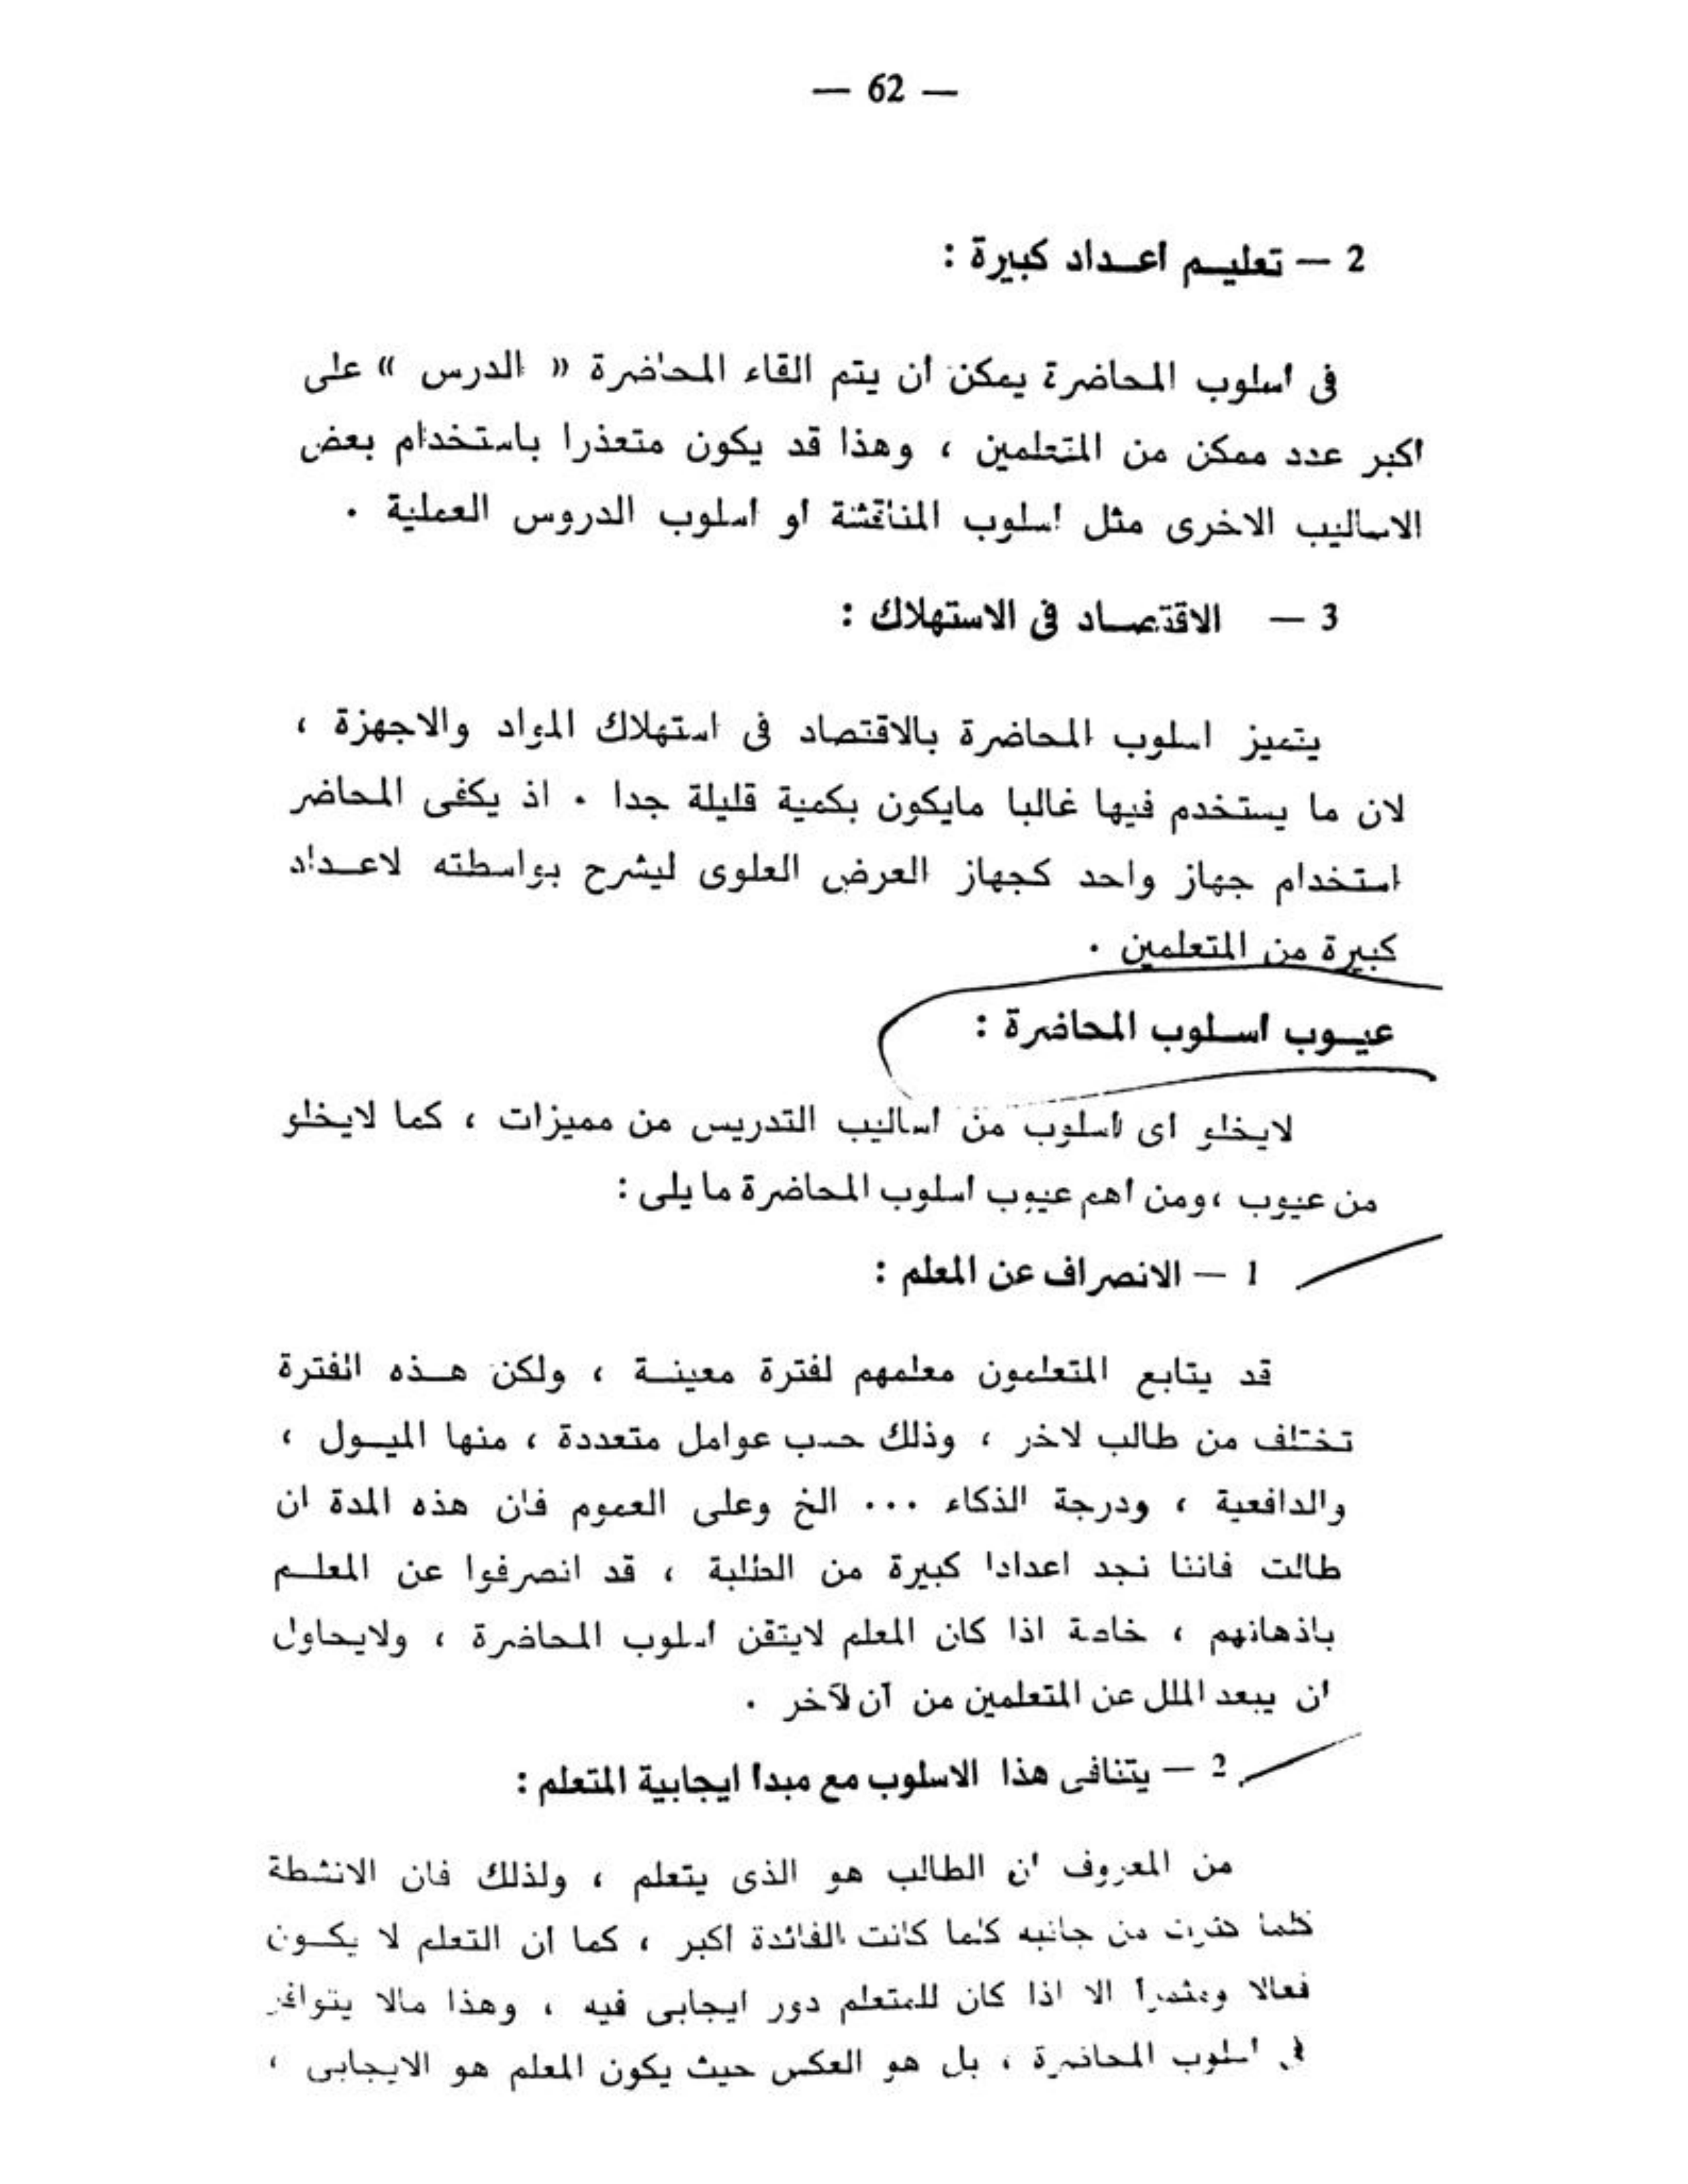 — 62 —
2 — تعليم اعداد كبيرة :
فى اسلوب المحاضرة يمكن ان يتم القاء المحاضرة « الدرس » على
اكبر عدد ممكن من المتعلمين ، وهذا قد يكون متعذرا باستخدام بعض
الاساليب الاخرى مثل اسلوب المناقشة او اسلوب الدروس العملية .
3 — الاقتصاد فى الاستهلاك :
يتميز اسلوب المحاضرة بالاقتصاد فى استهلاك المواد والاجهزة ،
لان ما يستخدم فيها غالبا مايكون بكمية قليلة جدا . اذ يكفى المحاضر
استخدام جهاز واحد كجهاز العرض العلوى ليشرح بواسطته لاعداد
كبيرة من المتعلمين .
عيوب اسلوب المحاضرة :
لايخلو اى اسلوب من اساليب التدريس من مميزات ، كما لايخلو
من عيوب ،ومن اهم عيوب اسلوب المحاضرة مايلى :
1 — الانصراف عن المعلم :
قد يتابع المتعلمون معلمهم لفترة معينة ، ولكن هذه الفترة
تختلف من طالب لاخر ، وذلك حسب عوامل متعددة ، منها الميول ،
والدافعية ، ودرجة الذكاء ... الخ وعلى العموم فان هذه المدة ان
طالت فاننا نجد اعدادا كبيرة من الطلبة ، قد انصرفوا عن المعلم
باذهانهم ، خاصة اذا كان المعلم لايتقن اسلوب المحاضرة ، ولايحاول
ان يبعد الملل عن المتعلمين من آن لآخر .
2 — يتنافى هذا الاسلوب مع مبدا ايجابية المتعلم :
من المعروف ان الطالب هو الذى يتعلم ، ولذلك فان الانشطة
كلما من جانبه كلما كانت الفائدة اكبر ، كما ان التعلم لا يكون
فعالا ومثمرا الا اذا كان للمتعلم دور ايجابى فيه ، وهذا مالا يتوافر
فى اسلوب المحاضرة ، بل هو العكس حيث يكون المعلم هو الايجابى ،